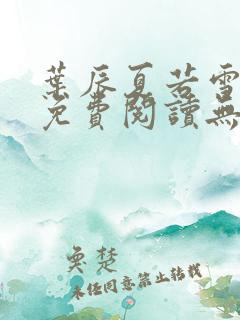 葉辰夏若雪
免費閱讀無
奐楚
未經同意禁止轉載